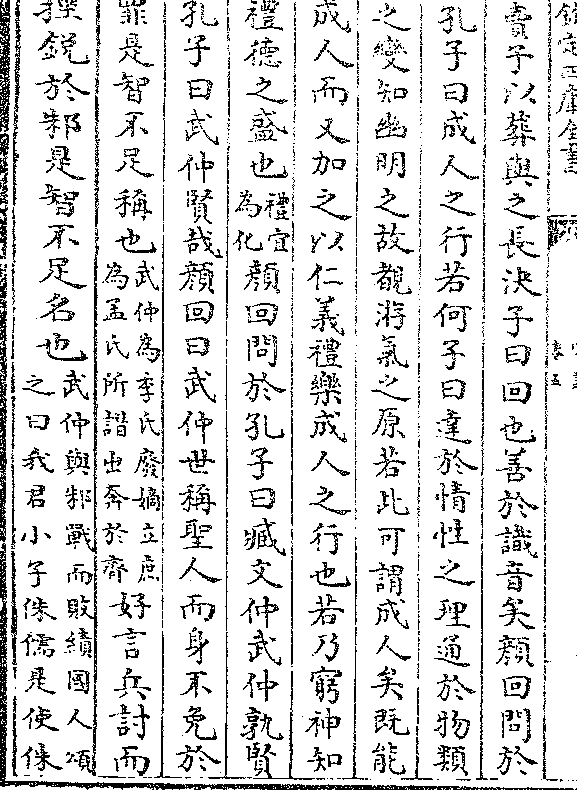 欽定四庫全書
卷五
賣子以葬與之長決子曰回也善於識音矣顔回問於
孔子曰成人之行若何子曰達於情性之理通於物類
之變知幽明之故覩游氣之原若此可謂成人矣既能
成人而又加之以仁義禮樂成人之行也若乃窮神知
禮德之盛也禮宜為化顔回問於孔子曰臧文仲武仲孰賢
孔子曰武仲賢哉顔回曰武仲世稱聖人而身不免於
罪是智不足稱也武仲為季氏廢嫡立庶為孟氏所譖出奔於齊好言兵討而
挫銳於邾是智不足名也武仲與邾戰而敗績國人頌之曰我君小子侏儒是使侏